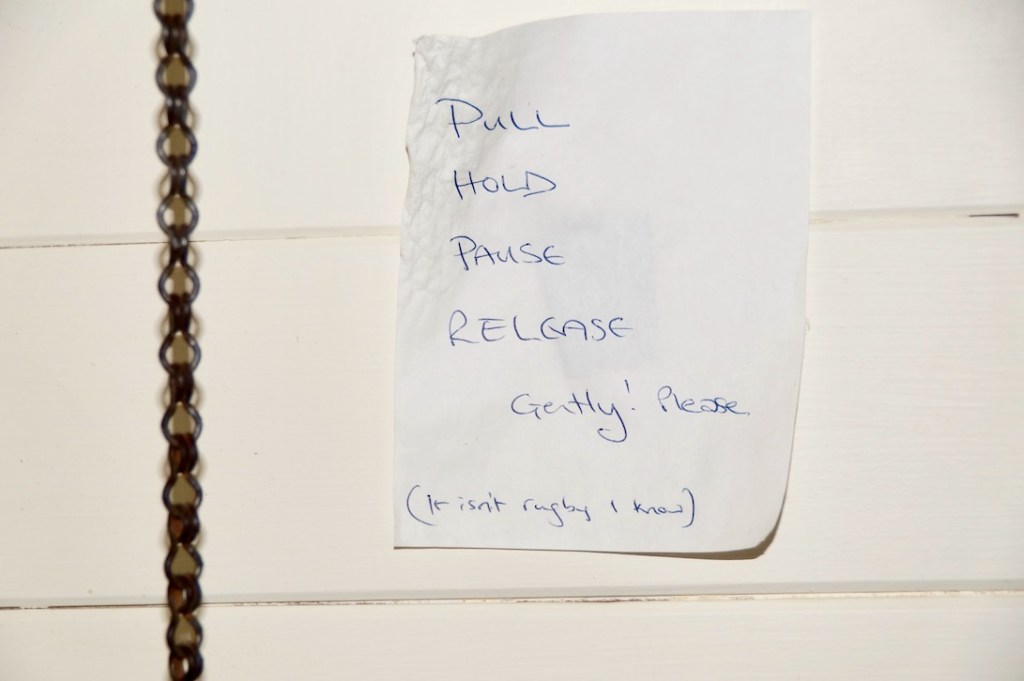 PULL
HOLD
PAUSE
RELEASE
Gently! Please
(It isn't rugby I know)